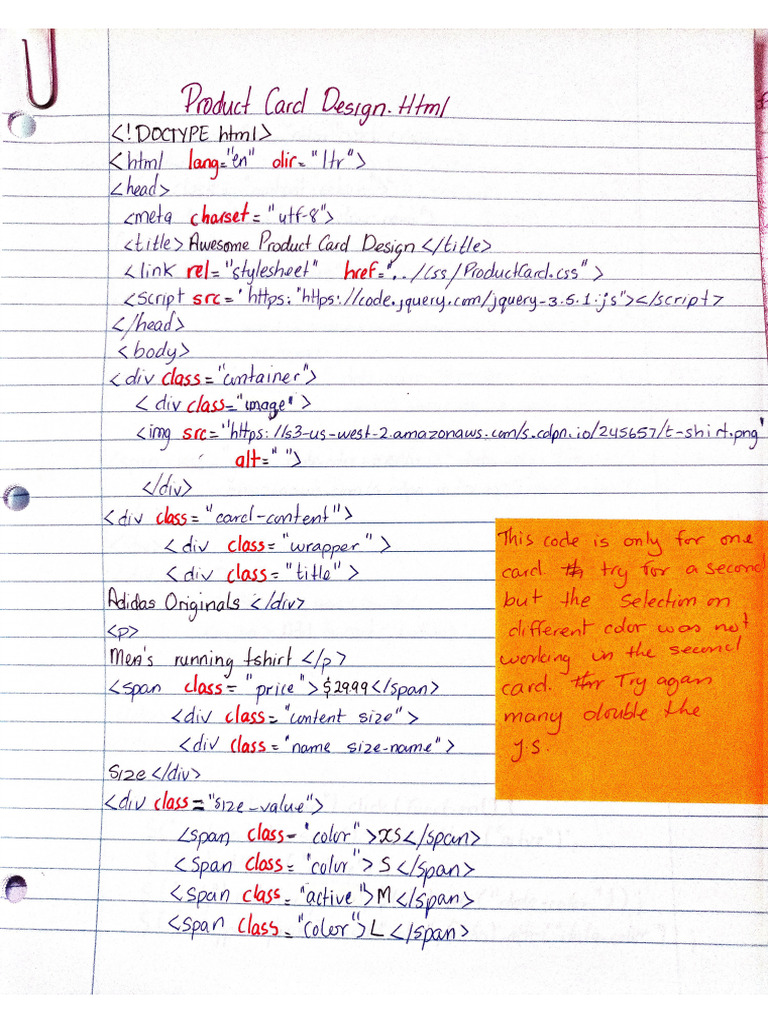 Product Card Design.Html
<!DOCTYPE html>
<html lang="en" dir="ltr">
<head>
<meta charset="utf-8">
<title>Awesome Product Card Design</title>
<link rel="stylesheet" href="../css/ProductCard.css">
<script src='https:"https://code.jquery.com/jquery-3.5.1.js"></script>
</head>
<body>
<div class="container">
<div class="image">
<img src="https://s3-us-west-2.amazonaws.com/s.cdpn.io/245657/t-shirt.png"
alt=" ">
</div>
<div class="card-content">
<div class="wrapper">
<div class="title">
Adidas Originals </div>
<p>
Men's running tshirt </p>
<span class="price">$29.99</span>
<div class="content size">
<div class="name size-name">
Size </div>
<div class="size-value">
<span class="color">XS</span>
<span class="color">S</span>
<span class="active">M</span>
<span class="color">L</span>
This code is only for one
card. try for a second
but the selection on
different color was not
working in the second
card. Try again
many double the
j.s.